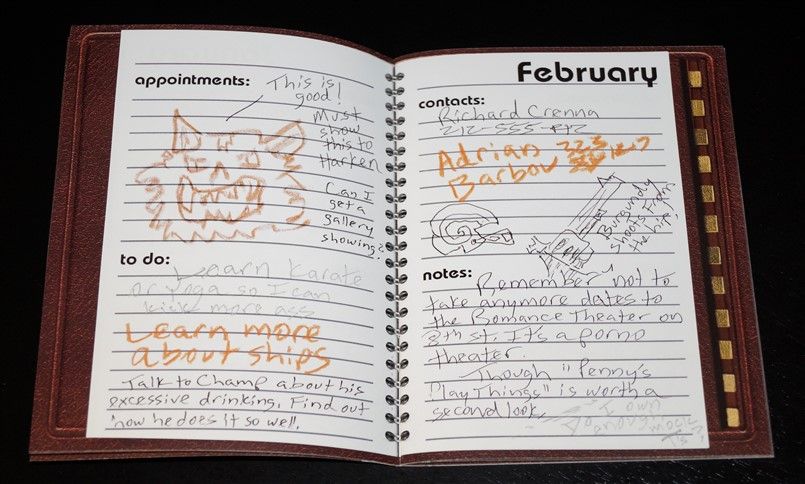 appointments:
This is
good!
Must
show
this to
Harken
Can I
get a
gallery
showing?
to do:
Learn karate
or yoga so I can
kick more ass
Learn more
about ships
Talk to Champ about his
excessive drinking. Find out
how he does it so well.
February
contacts:
Richard Crenna
212-555-
Adrian
Barbou
Burgundy
shoots from
the hip!
notes:
Remember not to
take anymore dates to
the Bomance Theater on
8th st. It's a porno
theater.
Though "Penny's
Play Things" is worth a
second look.
Do I own
enough mock
T's?